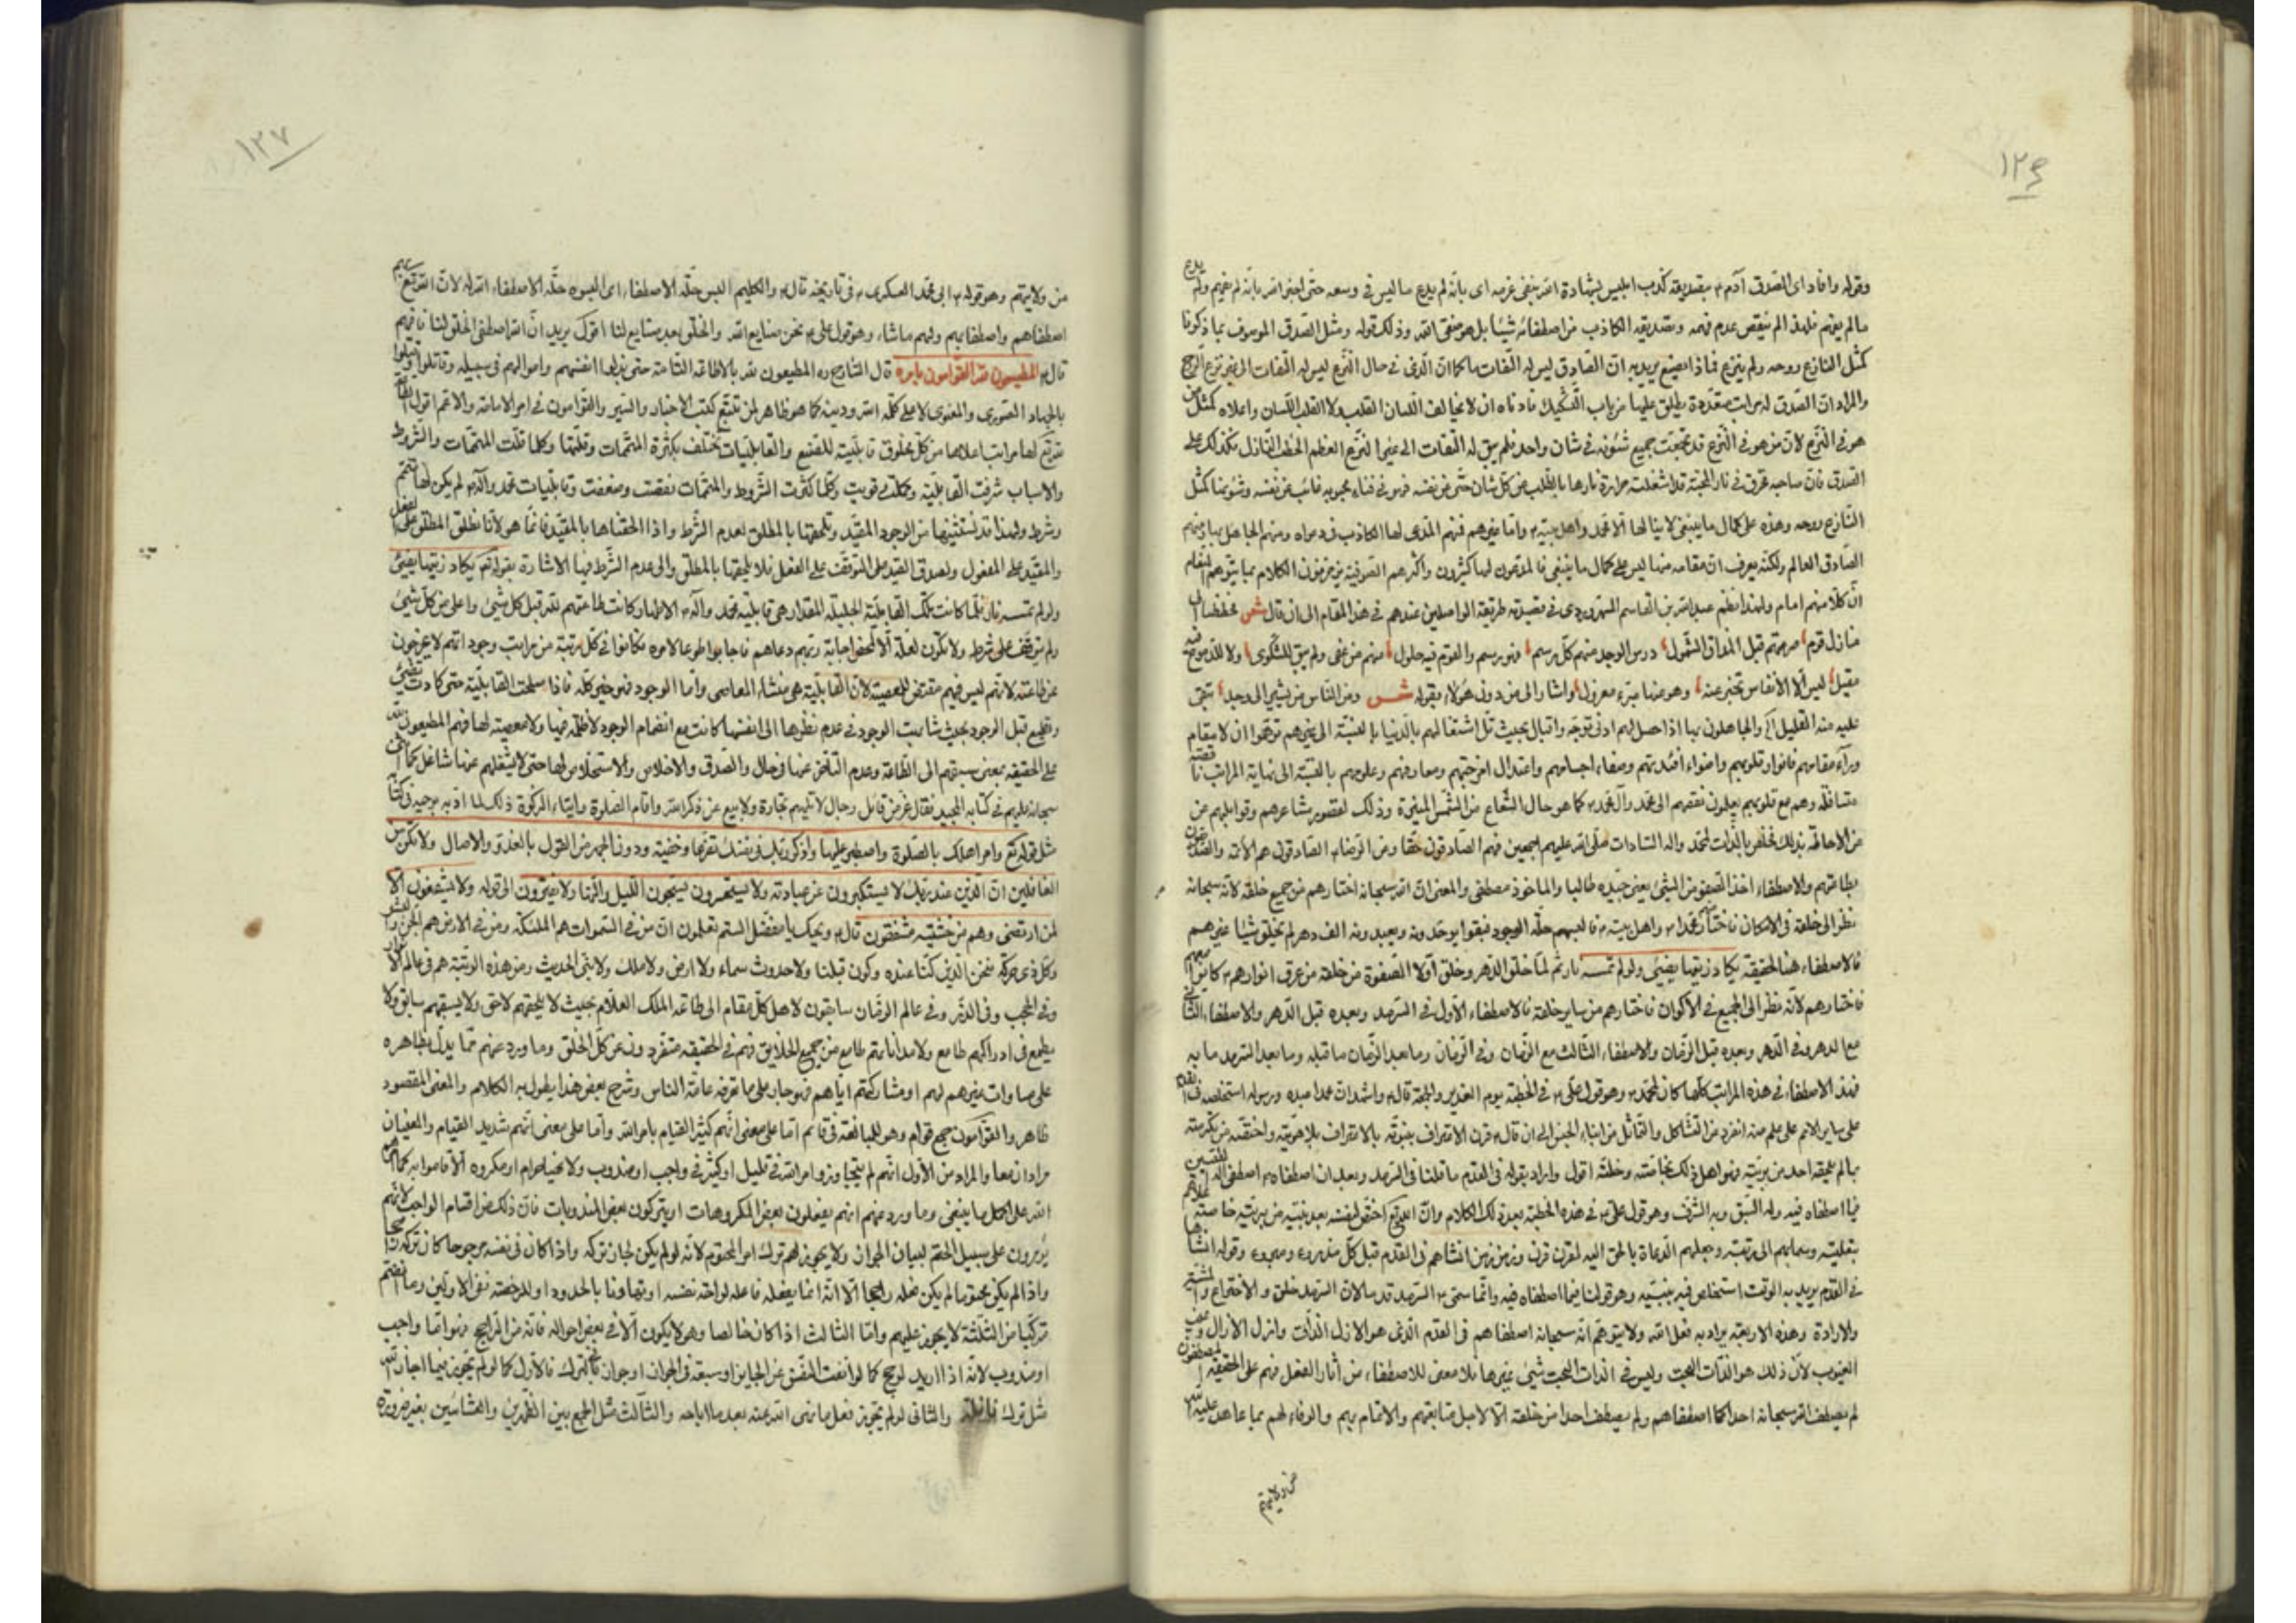 ١٢٦
وقوله وافاد اى الصّدق آدم ع بتصديقه كذب ابليس بشهادة الله بنقض عزمه اى بانّه لم يدع ما ليس فى وسعه حتى اخبر الله بانّه لم يفهم ولم يدع
ما لم يفهم فلهذا لم ينقص عدم فهمه وتصديقه الكاذب من اصطفائه شيئا بل هو صفىّ الله وذلك قوله ومثل الصّدق الموصوف بما ذكرنا
كمثل النازع روحه ولم ينزع فماذا يصنع يريد به ان الصّادق ليس له التفات ما كما انّ الذى فى حال النّزع ليس له التفات الى غير نزع الروح
والمراد ان الصّدق له مراتب متعدّدة يطلق عليها من باب التّشكيك فادناه ان لا يخالف اللسان القلب ولا القلب اللّسان واعلاه كمثل من
هو فى النّزع لانّ من هو فى النّزع قد تجمعت جميع شئونه فى شان واحد فلم يبق له التفات الى غير النّزع العظم الخطب النّازل فكذلك على
الصّدق فانّ صاحبه غرق فى نار المحبّة قد اشغلت حرارة نارها بالطّلب عن كلّ شان حتّى عن نفسه فهو فى فناء محبوبه غائب عن نفسه وشئونها كمثل
النّازع روحه وهذه على كمال ما ينبغى لا ينالها الّا محمّد واهل بيته ع وامّا غيرهم فمنهم المدّعى لها الكاذب فى دعواه ومنهم الجاهل بها ومنهم
الصّادق العالم ولكنّه يعرف انّ مقامه منها ليس على كمال ما ينبغى فالمدّعون لها كثيرون واكثرهم الصّوفيّة يزخرفون الكلام بما يتوهّم العوام
انّ كلّا منهم امام ولهذا نظم عبد الله بن القاسم السهروردى فى قصيدته طريقة الواصلين عندهم فى هذا المقام الى ان قال شعر فخططنا الى
منازل قوم صرعتهم قبل المذاق الشّمول درس الوجد منهم كلّ رسم فهو رسم والقوم فيه حلول منهم من عفى ولم يبق للشّكوى ولا للدموع فيه
مقيل ليس الّا الأنفاس تخبر عنه وهو عنها مبرّء معزول واشار الى من دون هؤلاء بقوله شعر ومن النّاس من يشير الى وجد تبقّى
عليه منه القليل الخ والجاهلون بها اذا حصل لهم ادنى توجّه واقبال بحيث قلّ اشتغالهم بالدّنيا بالنسبة الى غيرهم توهّموا ان لا مقام
ورآء مقامهم فانوار قلوبهم واضواء افئدتهم وصفاء اجسامهم واعتدال امزجتهم ومعارفهم وعلومهم بالنّسبة الى نهاية المراتب ناقصة
متسافلة وهم مع قلوبهم يعلون نقصهم الى محمّد وآل محمّد ع كما هو حال الشّعاع من الشّمس المنيرة وذلك لقصور مشاعرهم وقوابلهم عن
من الاحاطة بذلك فخلص بالذّات لمحمّد واله السّادات صلّى الله عليهم اجمعين فهم الصّادقون حقّا وعن الرّضا ع الصّادقون هم الأئمّة والصّدّيقون
بطاعتهم والاصطفاء اخذ الصّفو من الشّئ يعنى جيّده طالبا والماخوذ مصطفى والمعنى انّ الله سبحانه اختارهم من جميع خلقه لانّه سبحانه
نظر الى خلقه فى الامكان فاختار محمّدا ص واهل بيته ع فالبسهم حلّة الوجود فبقوا يوحّدونه ويعبدونه الف دهر لم يخلق شيئا غيرهم
فالاصطفاء هنا الحقيقة يكاد زيتها يضيئ ولو لم تمسسه نار ثم لمّا خلق الدّهر وخلق اوّلا الصّفوة من خلقه من عرق انوارهم ع كانبيائهم
فاختارهم لانّه نظر الى الجميع فى الأكوان فاختارهم من ساير خلقه فالاصطفاء الأوّل فى السّرمد وبعده قبل الدّهر والاصطفاء الثّانى
مع الدهر وفى الدّهر وبعده قبل الزّمان والاصطفاء الثّالث مع الزّمان وفى الزّمان وما بعد الزّمان ما قبله وما بعد السّرمد ما به
فهذا الاصطفاء فى هذه المراتب كلّها كان لمحمّد ص وهو قول علىّ ع فى الخطبة يوم الغدير والجمعة قال ع واشهد انّ محمّدا عبده ورسوله استخلصه فى القدم
على ساير الامم على علم منه انفرد عن التشاكل والتّماثل من ابناء الجنس الى ان قال ع قرن الاعتراف بنبوّته بالاعتراف بلاهوتيّته واختصّه من تكرمته
بما لم يلحقه احد من بريّته فهو اهل ذلك بخاصّته وخلّته اقول واراد بقوله فى القدم ما قلنا فى السّرمد وبعد ان اصطفاه ص اصطفى اله الطّيّبين
فيما اصطفاه فيه وله السّبق وبه الشّرف وهو قول علىّ ع فى هذه الخطبة بعد ذلك الكلام وانّ الله تع اختصّ لنفسه بعد نبيّه من بريّته خاصّة علّاهم
بتعليته وسما بهم الى رتبته وجعلهم الدّعاة بالحقّ اليه لقرن قرن وزمن زمن انشاهم فى القدم قبل كلّ مذروء ومبروء وقوله انشاها
فى القدم يريد به الوقت استخلص فيه نبيّه وهو قولنا فيما اصطفاه فيه وانّما سمّى السّرمد قدما لانّ السّرمد خلق والاختراع والمشيّة
والارادة وهذه الاربعة يراد به فعل الله ولا يتوهّم انّه سبحانه اصطفاهم فى القدم الّذى هو الازل الذّات وازل الآزال وغيب
الغيوب لانّ ذلك هو الذّات البحت وليس فى الذات البحت شيئ غيرها فلا معنى للاصطفاء من آثار الفعل فهم على الحقيقة المصطفون
لم يصطف الله سبحانه احدا كما اصطفاهم ولم يصطف احدا من خلقه الّا لاجل متابعتهم والائتمام بهم والوفاء لهم بما عاهد عليه الله
من ولايتهم
١٢٧
من ولايتهم وهو قوله ع ابى محمّد العسكرى ع فى تاريخه قال ع والكليم البس حلّة الاصطفاء اى البسوه حلّة الاصطفاء الله له لانّ الله تع بهم
اصطفاهم واصطفا بهم ولهم ما شاء وهو قول على ع نحن صنايع الله والخلق بعد صنايع لنا اقول يريد انّ الله اصطفى الخلق لنا فافهم
قال ع المطيعون لله القوّامون بامره قال الشارح ره المطيعون لله بالاطاعة التّامّة حتى بذلوا انفسهم واموالهم فى سبيله وقاتلوا وقتلوا
بالجهاد الصّورى والمعنوى لاعلى كلمة الله ودينه كما هو ظاهر لمن تتبّع كتب الاخبار والسّير والقوّامون فى امر الامامة والاعم اقول الطاعة
لله تع لها مراتب اعلاها من كلّ مخلوق قابليّته للصّنع والقابليّات تختلف بكثرة المتمّمات وقلّتها وكلما قلّت المتمّمات والشّروط
والاسباب شرفت القابليّة وكملت وقويت وكلّما كثرت الشّروط والمتمّمات نقصت وضعفت وقابليّات محمّد وآله ع لم يكن لها متمّم
وشرط ولهذا قد نستثنيها من الوجود المقيّد ونلحقها بالمطلق لعدم الشّرط واذا الحقناها بالمقيّد فانّما هو لأنّا نطلق المطلق على الفعل
والمقيّد على المفعول ولصدق القيد على المتوقّف على الفعل فلا يلحقها بالمطلق والى عدم الشّرط فيها الاشارة بقوله تع يكاد زيتها يضيئ
ولو لم تمسسه نار فلمّا كانت تلك القابليّة الجليلة المقدار هى قابليّة محمّد وآله الاطهار كانت طاعتهم لله قبل كلّ شيئ واعلى من كلّ شيئ
ولم تتوقّف على شرط ولا تكون لعلّة الّا لمحض اجابة ربّهم دعاهم فاجابوا طوعا لامره فكانوا فى كلّ رتبة من مراتب وجوداتهم لا يخرجون
عن طاعته لانّهم ليس فيهم مقتض للمعصية لانّ القابليّة هى منشاء المعاصى وامّا الوجود فهو خير كلّه فاذا صلحت القابليّة حتى كادت تضيئ
وتطيع قبل الوجود بحيث شابهت الوجود فى عدم نظرها الى نفسها كانت مع انضمام الوجود لا ظلمة فيها ولا معصية لها فهم المطيعون لله
على الحقيقة بمعنى سبقهم الى الطّاعة وعدم التأخّر عنها فى حال والصّدق والاخلاص والاستخلاص لها حتى لا يشغلهم عنها شاغل كما اثنى
سبحانه عليهم فى كتابه المجيد فقال عزّ من قائل رجال لا تلهيهم تجارة ولا بيع عن ذكر الله واقام الصّلوة وايتاء الزكوة ذلك لما ادّبه بوحيه فى كتابه
مثل قوله تع وامر اهلك بالصّلوة واصطبر عليها واذكر ربّك فى نفسك تضرّعا وخفية ودون الجهر من القول بالغدوّ والآصال ولا تكن من
الغافلين انّ الّذين عند ربّك لا يستكبرون عن عبادته ولا يستحسرون يسبّحون الليل والنّهار لا يفترون الى قوله ولا يشفعون الّا
لمن ارتضى وهم من خشيته مشفقون قال ع ويحك يا مفضّل الستم تعلمون انّ من فى السّموات هم الملئكة ومن فى الارض هم الجنّ والبشر
وكل ذى حركة فنحن الّذين كنّا عنده وكون قبلنا ولا حدوث سماء ولا ارض ولا ملك ولا نبىّ الحديث ومن هذه الرّتبة هم فى عالم الانوار
وفى الحجب وفى الذّر وفى عالم الزمان سابقون لاهل كلّ مقام الى طاعة الملك العلّام بحيث لا يلحقهم لاحق ولا يسبقهم سابق ولا
يطمع فى ادراكهم طامع ولا مداناتهم طامع من جميع الخلايق فهم فى الحقيقة متفردون عن كلّ الخلق وما ورد عنهم ممّا يدلّ بظاهره
على مساوات غيرهم لهم او مشاركتهم ايّاهم فهو جار على ما تعرفه عامّة الناس وشرح بعض هذا يطول به الكلام والمعنى المقصود
ظاهر والقوّامون جمع قوّام وهو للمبالغة فى قائم امّا على معنى انّهم كثيروا القيام بامر الله وامّا على معنى انّهم شديد القيام والمعنيان
مرادان معا والمراد من الأوّل انّهم لم يتجاوزوا امر الله فى قليل او كثير فى واجب او مندوب ولا نهيا حرام او مكروه الّا قاموا به كما امر
الله على اكمل ما ينبغى وما ورد عنهم انّهم يفعلون بعض المكروهات او يتركون بعض المندوبات فانّ ذلك من اقسام الواجب لانّهم
يؤمرون على سبيل الحتم لبيان الجواز ولا يجوز لهم ترك امر المحتوم لانّه لو لم يكن لجاز تركه واذا كان فى نفسه مرجوحا كان تركه راجحا
واذا لم يكن محتوما لم يكن فعله راجحا الّا انّه انّما يفعله فاعله لراحة نفسه او تهاونا بالحدود او للرخصة نفى الاوّلين وما انضمّ
تركّبا من الثلثة لا يجوز عليهم وامّا الثالث اذا كان خالصا وهو لا يكون الّا فى بعض احواله فانّه من الرّاجح فهو امّا واجب
او مندوب لانّه اذا اريد لرجح كما لو انفت النّفس عن الجايز او سبقه فى الجواز او جواز التّرك فالاوّل كما لو لم تجوّز فيما اجاز الله
مثل ترك نافلة والثانى لو لم يجوّز فعل ما نهى الله عنه بعد ما اباحه والثالث مثل الجمع بين الظّهرين والعشائين بغير ضرورة